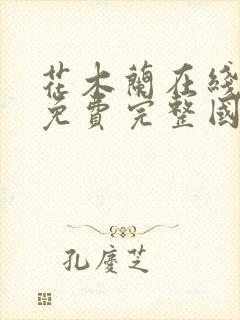 花木蘭在綫
免費完整國
孔慶芝